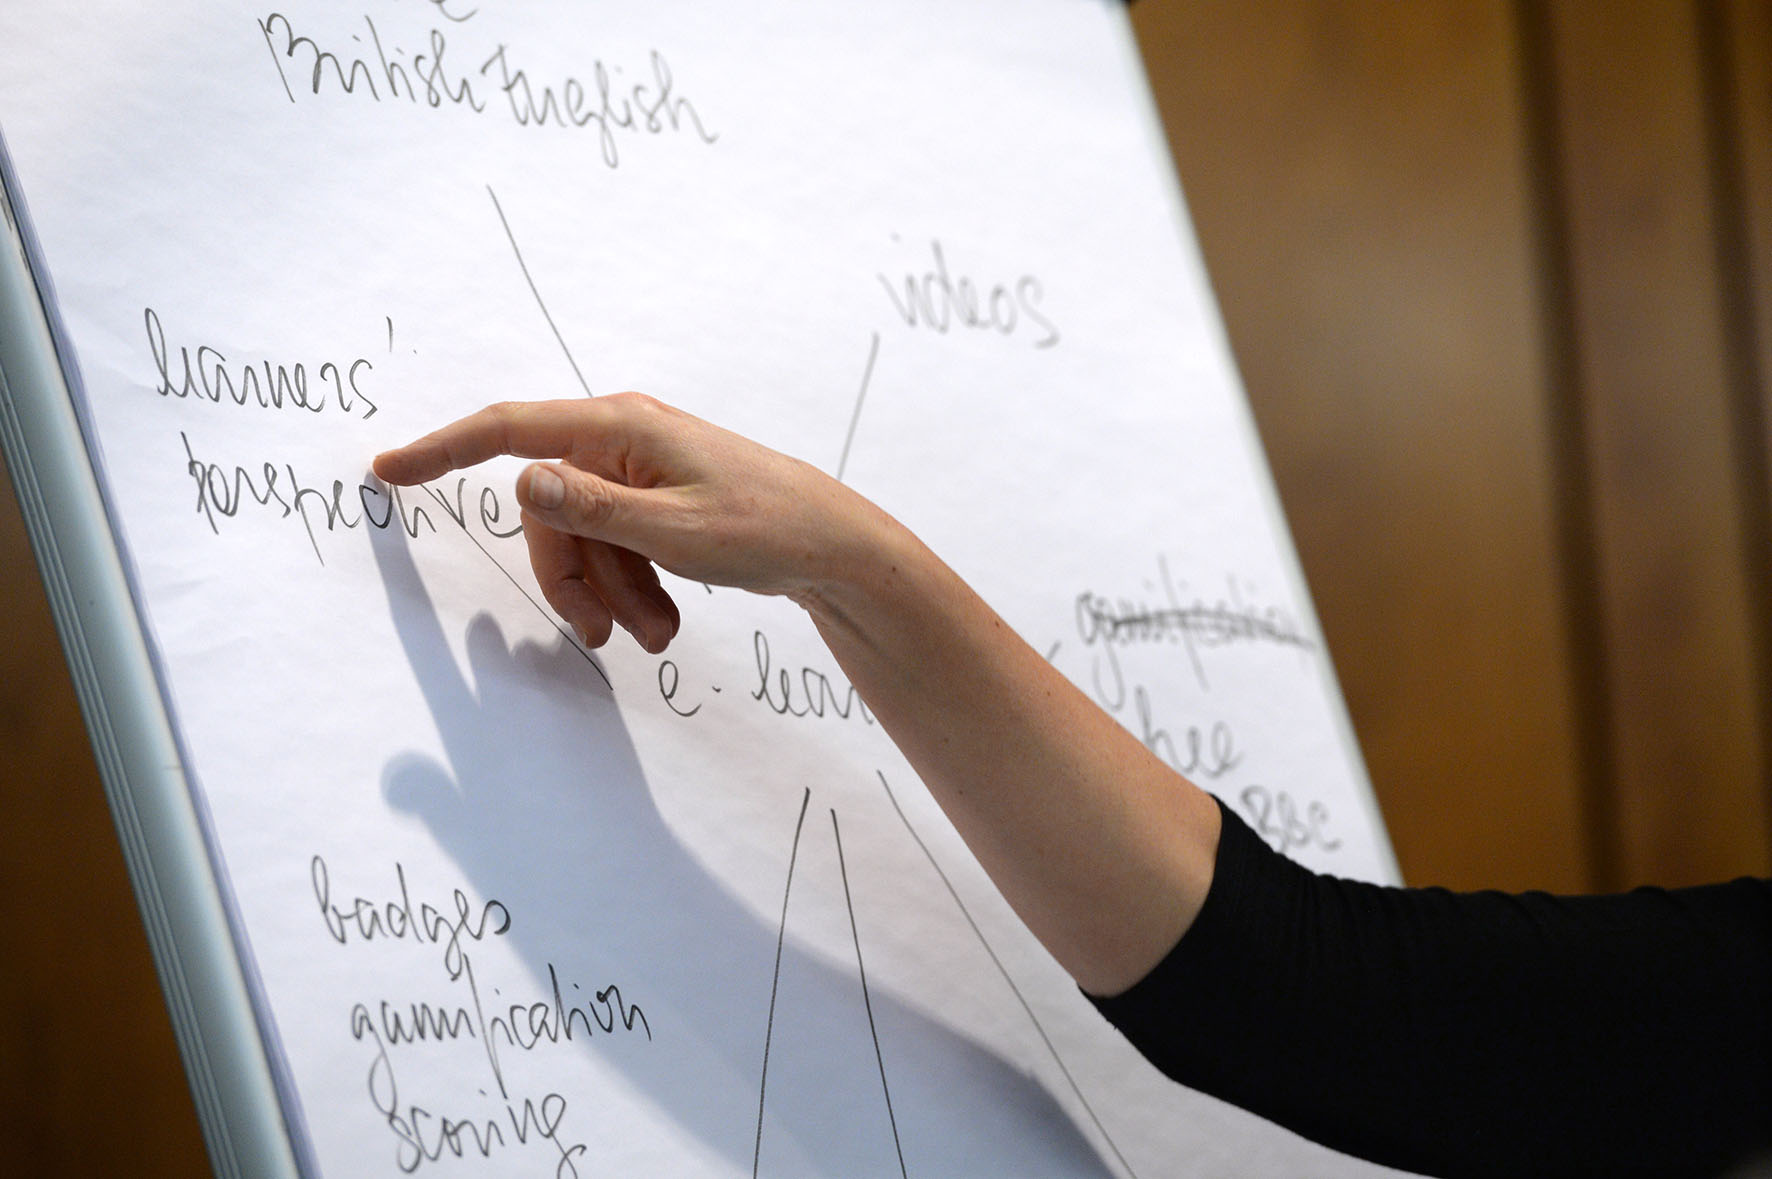 British English
videos
learners'
perspective
e-lear
gamification
free
BBC
badges
gamification
scoring